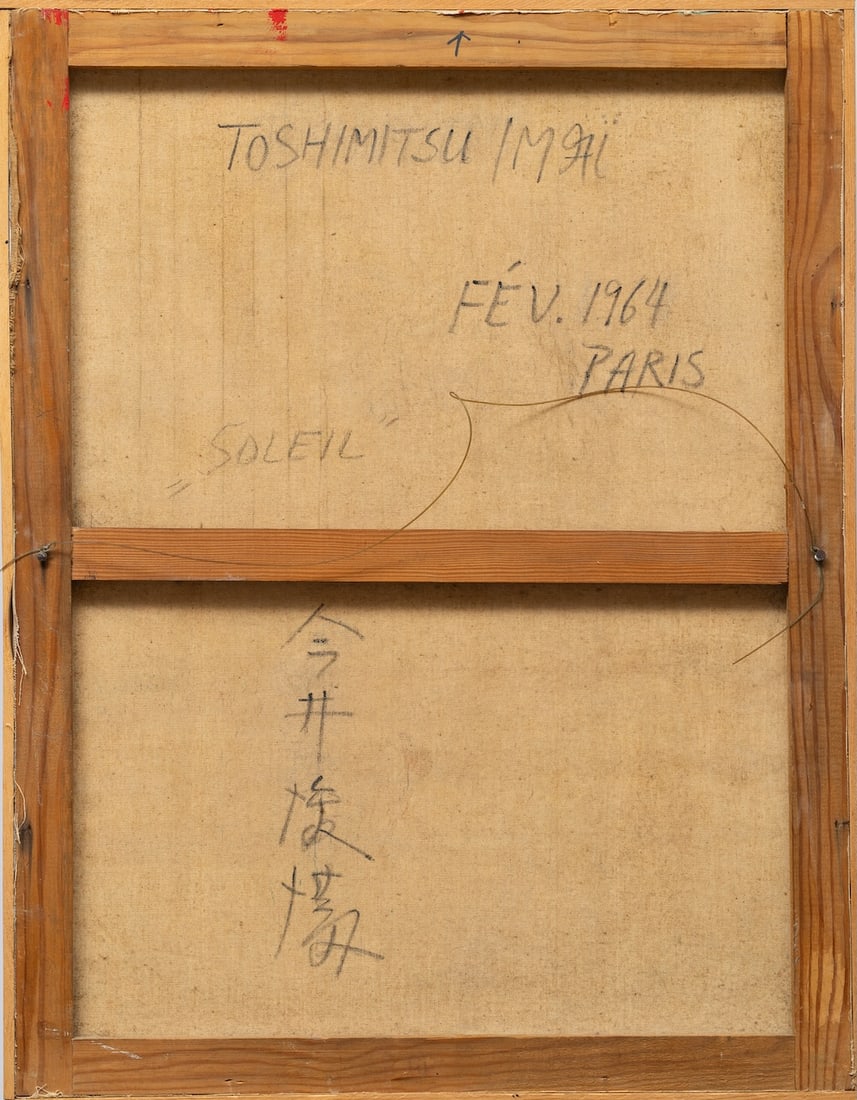 TOSHIMITSU IMAÏ
FÉV. 1964
PARIS
„SOLEIL"
今井俊満